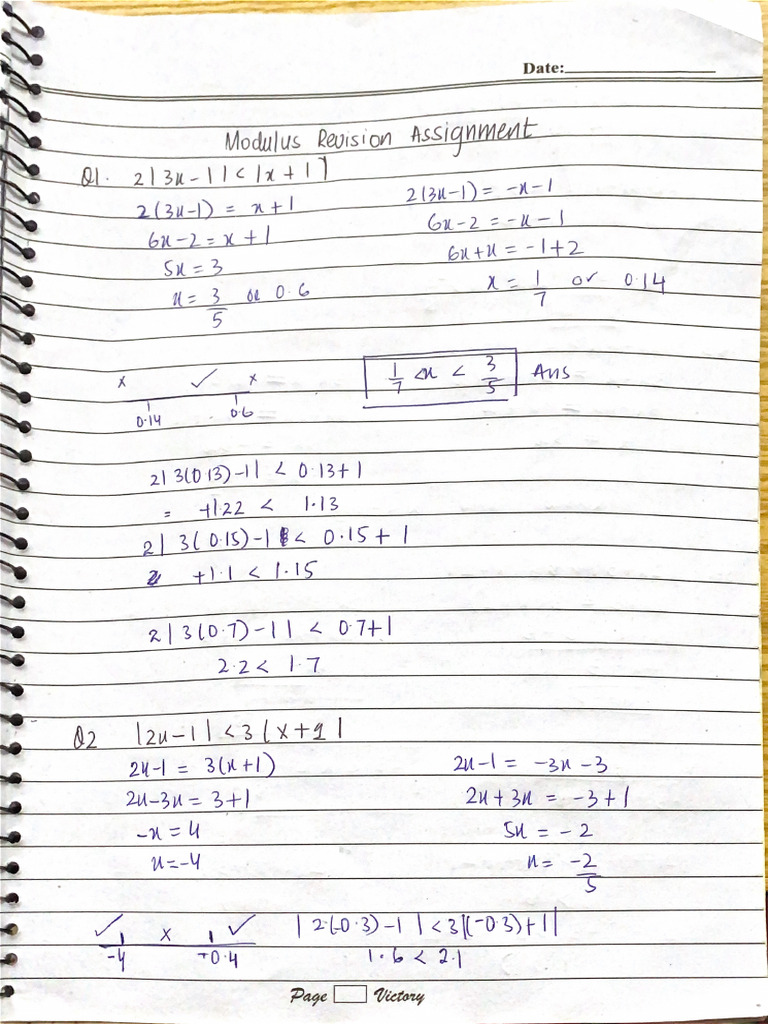 Date:
Modulus Revision Assignment
Q1. 2|3x-1| < |x+1|
2(3x-1) = x+1
6x-2 = x+1
5x = 3
x = 3/5 or 0.6
2(3x-1) = -x-1
6x-2 = -x-1
6x+x = -1+2
x = 1/7 or 0.14
x ✓ x
0.14 0.6
1/7 < x < 3/5 Ans
2|3(0.13)-1| < 0.13+1
= +1.22 < 1.13
2|3(0.15)-1| < 0.15+1
+1.1 < 1.15
2|3(0.7)-1| < 0.7+1
2.2 < 1.7
Q2 |2x-1| < 3|x+1|
2x-1 = 3(x+1)
2x-3x = 3+1
-x = 4
x = -4
2x-1 = -3x-3
2x+3x = -3+1
5x = -2
x = -2/5
✓ x ✓
-4 -0.4
|2(-0.3)-1| < 3|(-0.3)+1|
1.6 < 2.1
Page Victory